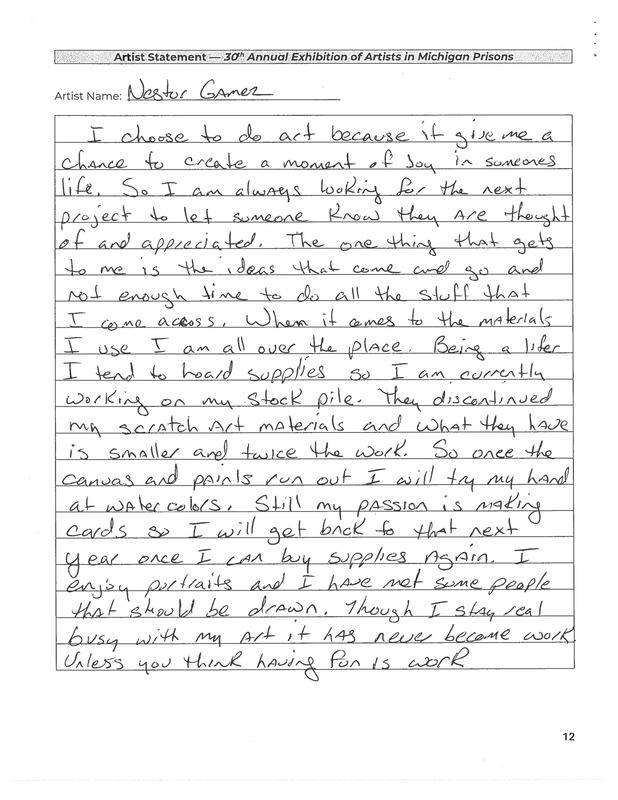 Artist Statement — 30th Annual Exhibition of Artists in Michigan Prisons
Artist Name: Nestor Gamez
I choose to do art because it give me a
chance to create a moment of Joy in someones
life. So I am always looking for the next
project to let someone Know they are thought
of and appreciated. The one thing that gets
to me is the ideas that come and go and
not enough time to do all the stuff that
I come across. When it comes to the materials
I use I am all over the place. Being a lifer
I tend to hoard supplies so I am currently
working on my stock pile. They discontinued
my scratch Art materials and what they have
is smaller and twice the work. So once the
canvas and paints run out I will try my hand
at watercolors. Still my passion is making
cards so I will get back to that next
year once I can buy supplies again. I
enjoy portraits and I have met some people
that should be drawn. Though I stay real
busy with my art it has never become work
Unless you think having fun is work
12